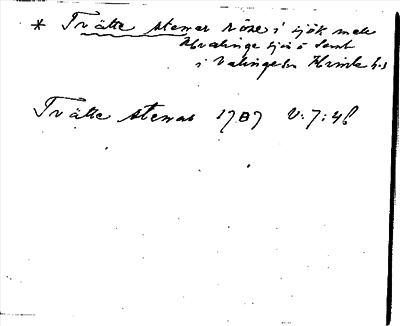 * Trätte stenar röse i sjök med
Hvalinge sjö o Semt
i Valinge sn Himle hd
Trätte stenar 1787 V:7:46